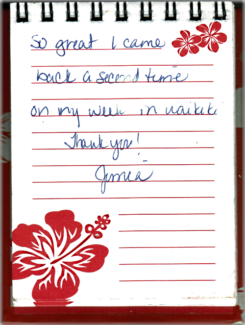 So great I came
back a second time
on my week in waikiki
Thank you!